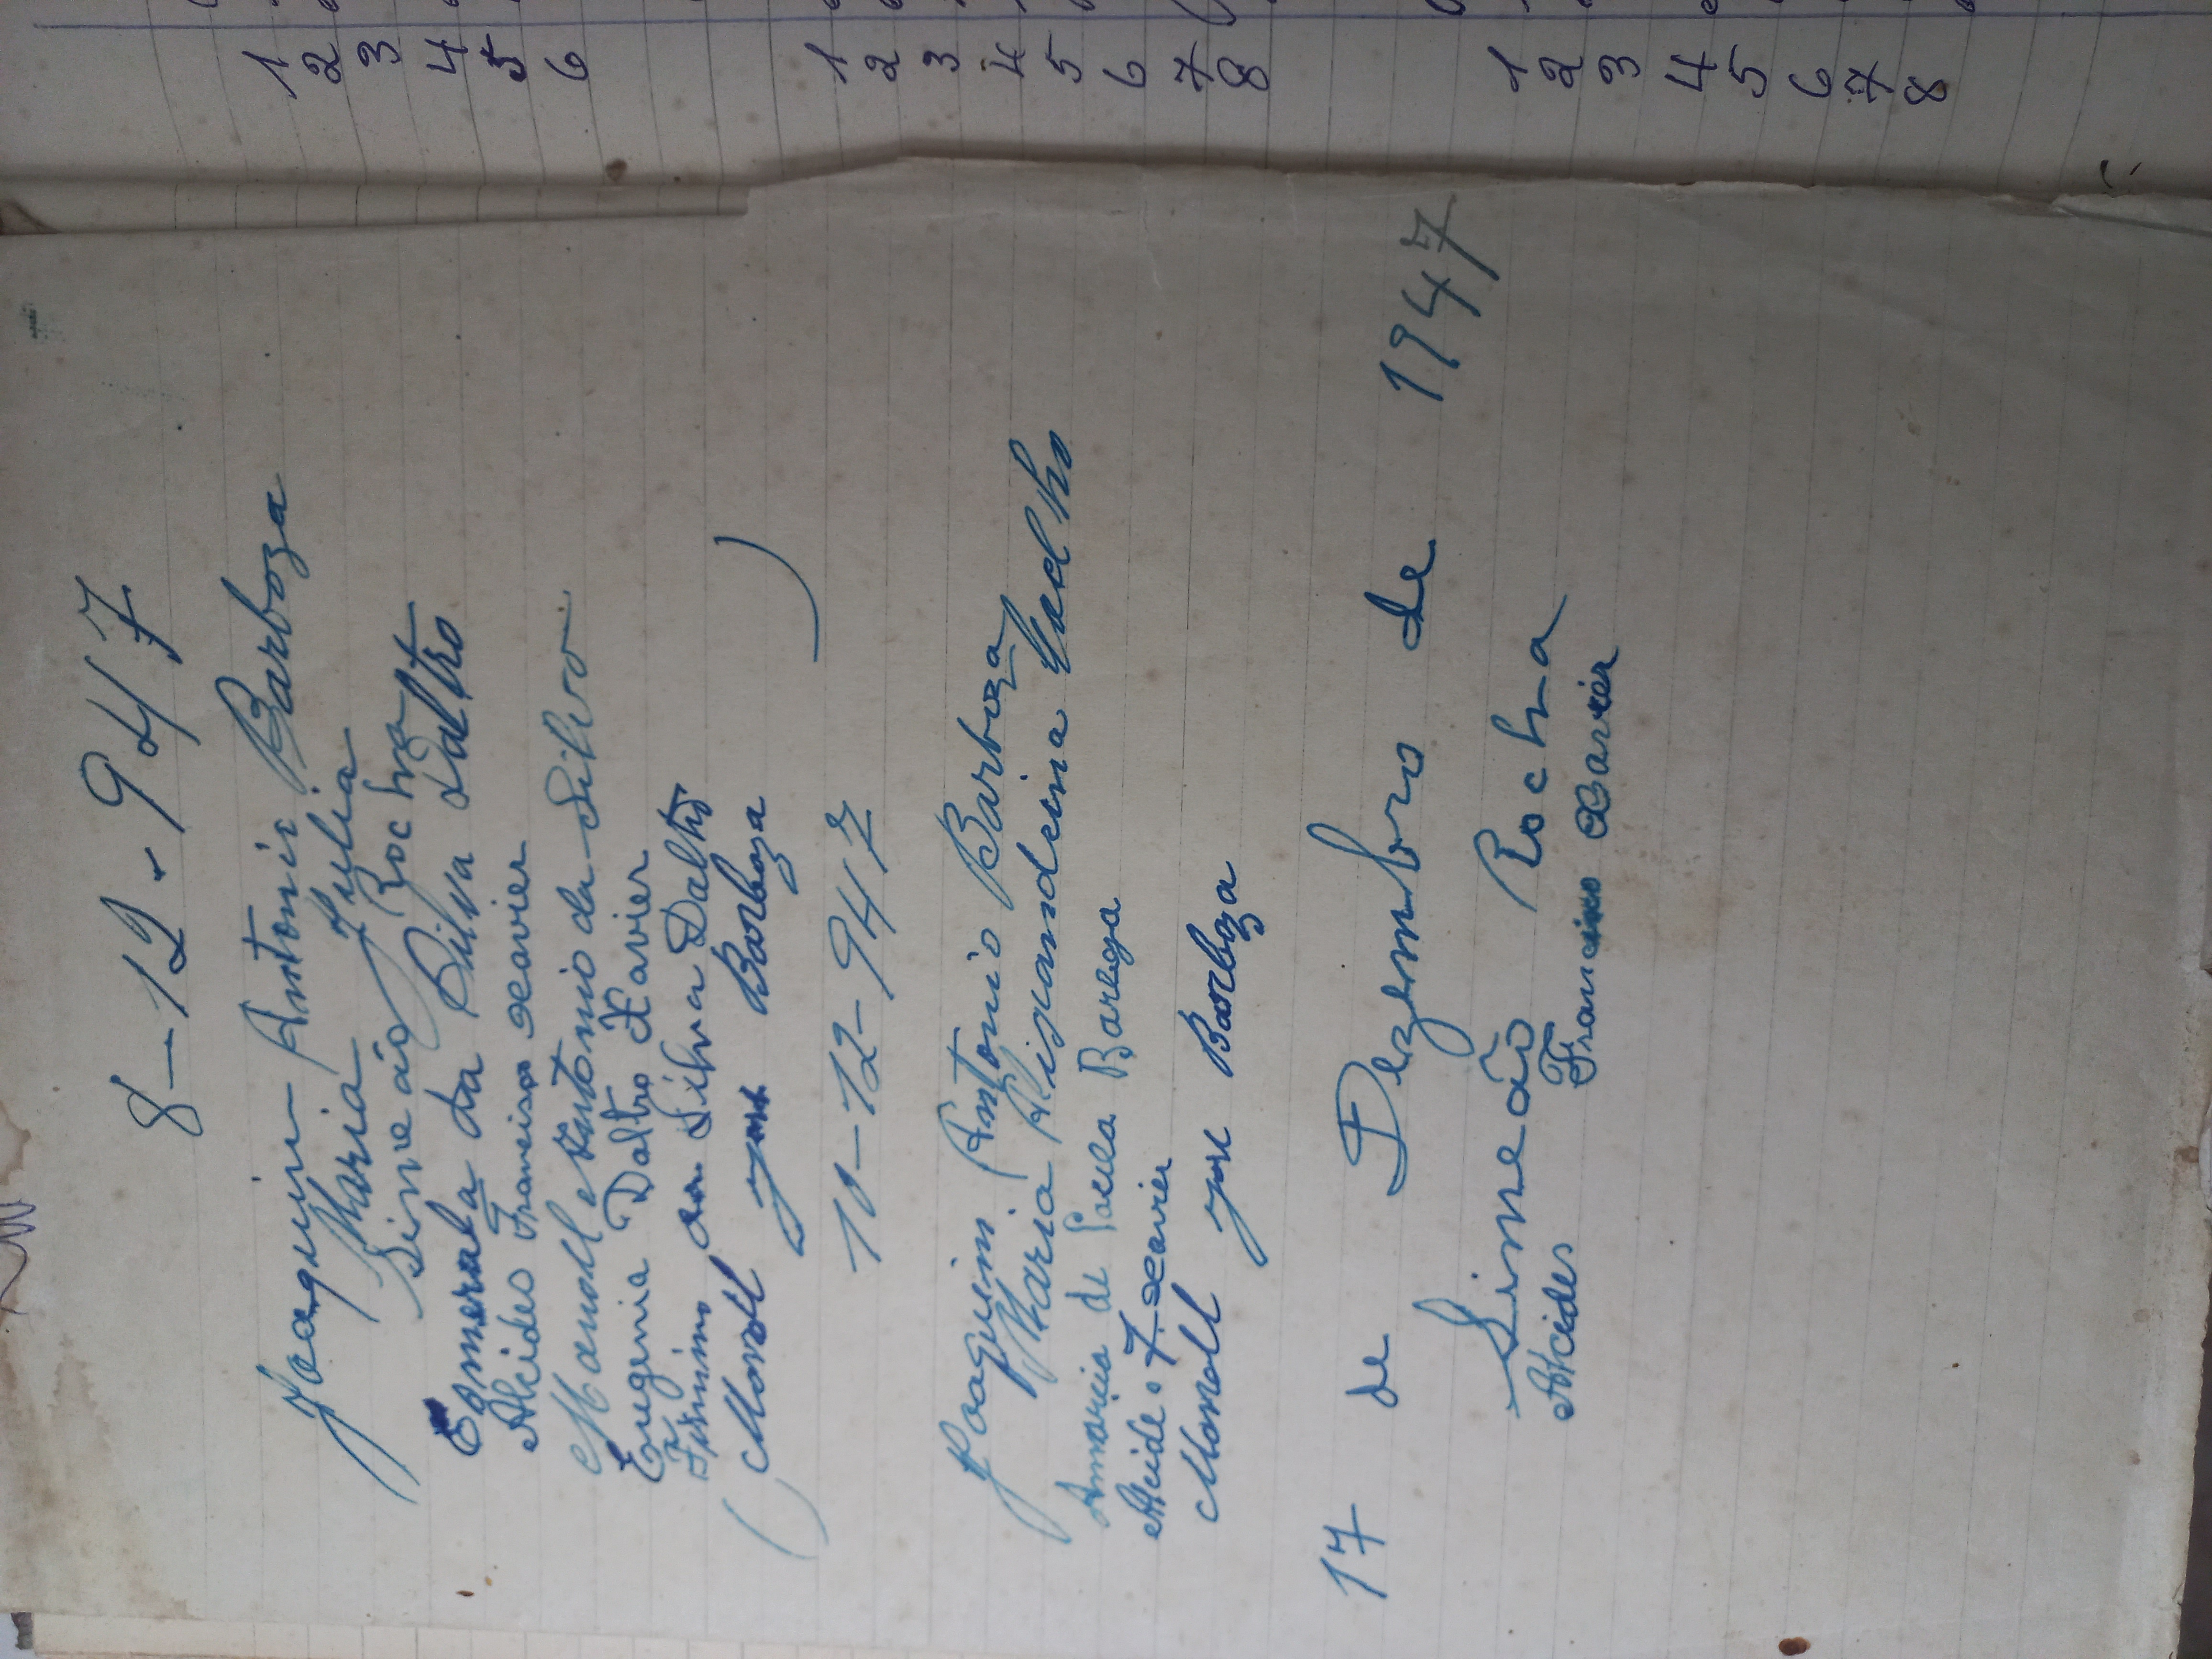 8-12-947
Joaquim Antonio Barboza
Maria Julia
Simeão Rocha
Esmerala da Silva Daltro
Alcides Francisco xavier
Manoel Antonio da Silva
Eugenia Daltro Xavier
Firmino da Silva Daltro
(Manoel José Barboza)
10-12-947
Joaquim Antonio Barboza
Maria Alixandrina Coelho
Amaricia de Paula Barboza
Alcides F. xavier
Manoel José Barboza
17 de Dezembro de 1947
Simeão Rocha
Alcides Francisco Xavier
1
2
3
4
5
6
1
2
3
4
5
6
7
8
1
2
3
4
5
6
7
8